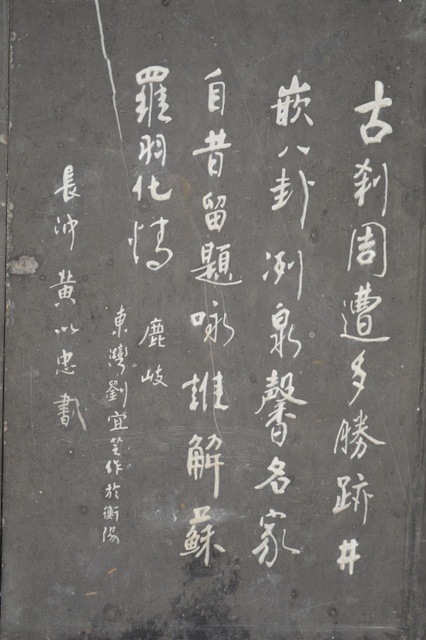 古刹周遭多勝跡井
嵌八卦冽泉馨名家
自昔留題咏誰解蘇
羅羽化情
鹿岐
東灣劉宜芝作於衡陽
長沖黃以忠書